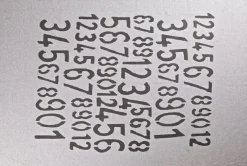 123456789012
345678901
6789012345678
567890123456
123456789012
345678901